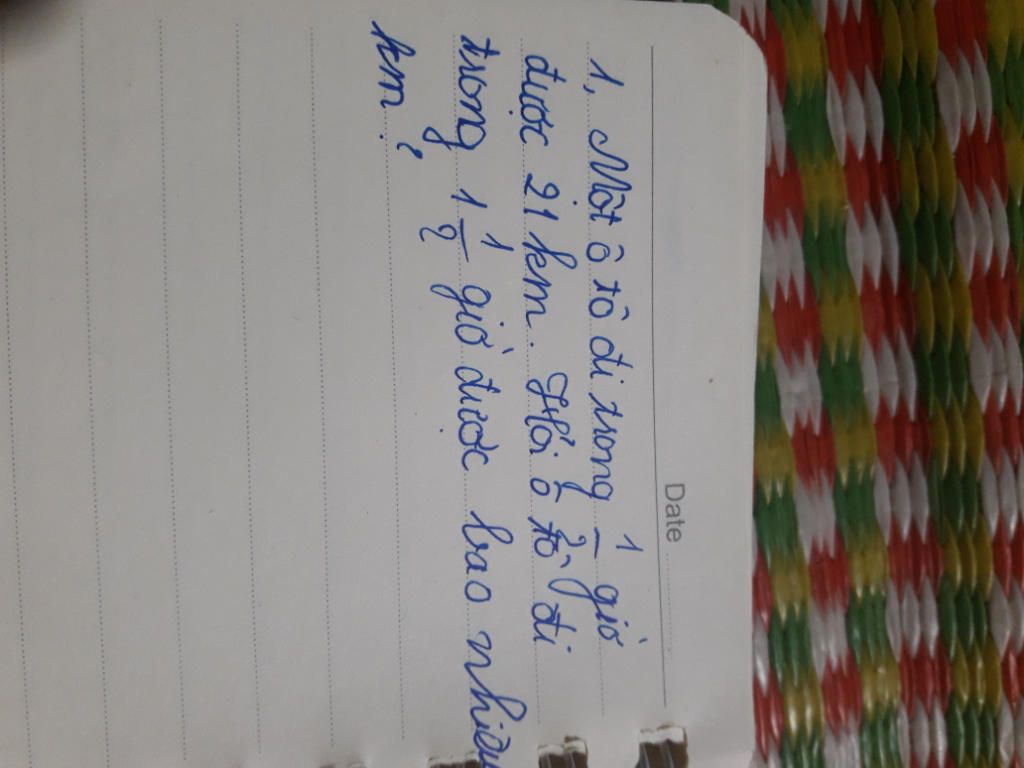 Date
1, Một ô tô đi trong 1/2 giờ
được 21 km. Hỏi ô tô đi
trong 1 1/2 giờ được bao nhiêu
km?